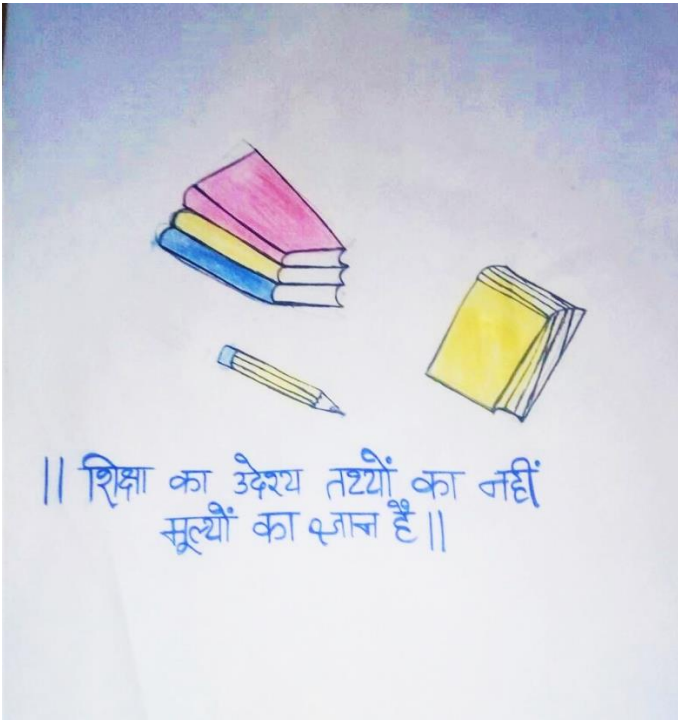 || शिक्षा का उदेश्य तथ्यों का नहीं
मूल्यों का ज्ञान है ||